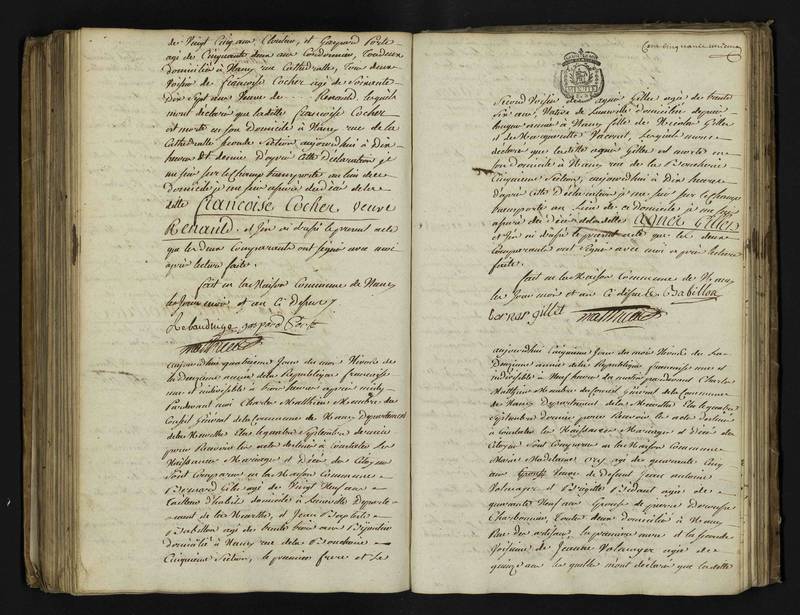 de Vingt Cinq ans Cloutier, et Gaspard Porte
agé de Cinquante deux ans Cordonnier, tous deux
domiciliés à Nancy rue Cathédralle, tous deux
Voisin de françoise Cocher agé de Soixante
Dix Sept ans Veuve de Renauld. lesquels
mont déclaré que laditte françoise Cocher
est morte en son domicile à Nancy rue de la
Cathédralle seconde Section aujourd'hui à Dix
heures et demie d'après cette déclaration je
me suis sur le Champ transporté au lieu de ce
domicile je me suis assuré du décès de la
ditte françoise Cocher veuve
Renauld. et j'en ai dressé le présent acte
que les deux Comparants ont signé avec moi
après lecture faite.
fait en la Maison Commune de Nancy
les Jour mois et an Ci dessus
gaspard Porte
Matthieu
aujourd'hui quatrieme Jour du mois Nivose de
la deuxieme année de la Republique française
une et indivisible à trois heures après midy
Pardevant moi Charles Matthieu Membre du
Conseil Général de la Commune de Nancy Département
de la Meurthe Elu le quatre Septembre dernier
pour Recevoir les actes destinés à Constater les
Naissances Mariages et Décès des Citoyens
Sont Comparus en la Maison Commune
Bernard Gilet agé de Vingt Neuf ans
tailleur d'habits domicilié à Luneville Departe-
ment de la Meurthe, et Jean Baptiste
Babillon agé de trente trois ans Bijoutier
domicilié à Nancy rue de la Boucherie
Cinquieme Section, le premier frere et le
Cent cinquante unieme
Second Voisin de agnès Gillet agée de trente
Six ans, Native de Luneville Domiciliée depuis
à Nancy fille de Nicolas Gillet
et de Marguerite lesquels mont
déclaré que laditte agnès Gillet est morte en
son domicile à Nancy rue de la Boucherie
Cinquieme Section, aujourd'hui à Dix heures
d'après Cette Déclaration je me suis sur le Champ
transporté au Lieu de ce domicile je me suis
assuré du décès de laditte agnès Gillet
et j'en ai dressé le présent acte que les deux
Comparants ont Signé avec moi après lecture
faite.
fait en la Maison Commune de Nancy
les Jour mois et an Ci dessus Babillon
bernar gillet Matthieu
aujourd'hui Cinquieme Jour du mois Nivose de la
Deuxieme année de la Republique française une et
indivisible à Neuf heures du matin pardevant Charles
Matthieu Membre du Conseil Général de la Commune
de Nancy Departement de la Meurthe Elu le quatre
Septembre Dernier pour Recevoir les actes destinés
à Constater les Naissances Mariages et Décès des
Citoyens Sont Comparus en la Maison Commune
Marie Madelaine agé de quarante Cinq
ans Veuve de Defunt Jean antoine
Valmager et Brigitte Bidaut agée de
quarante Neuf ans Epouse de pierre
Charbonnier, toutes deux domiciliés à Nancy
Rue des artisans la premiere mere et la seconde
Voisine de Jeanne Valmager agée de
quinze ans les quelles mont déclaré que laditte